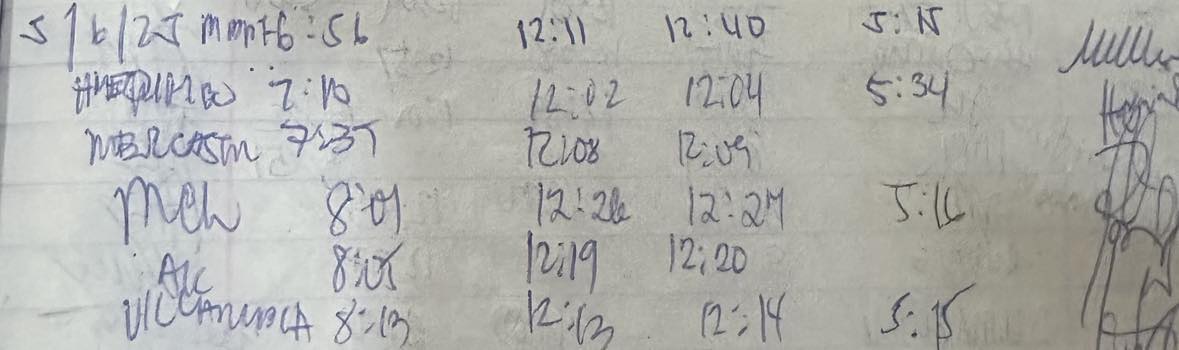 5/6/25 mmnt 6:56 12:11 12:40 5:15
7:10 12:02 12:04 5:34
MERCASTN 7:35 12:08 12:09
MCh 8:01 12:26 12:27 5:16
ALC 8:05 12:19 12:20
VILLANUEVA 8:13 12:13 12:14 5:15